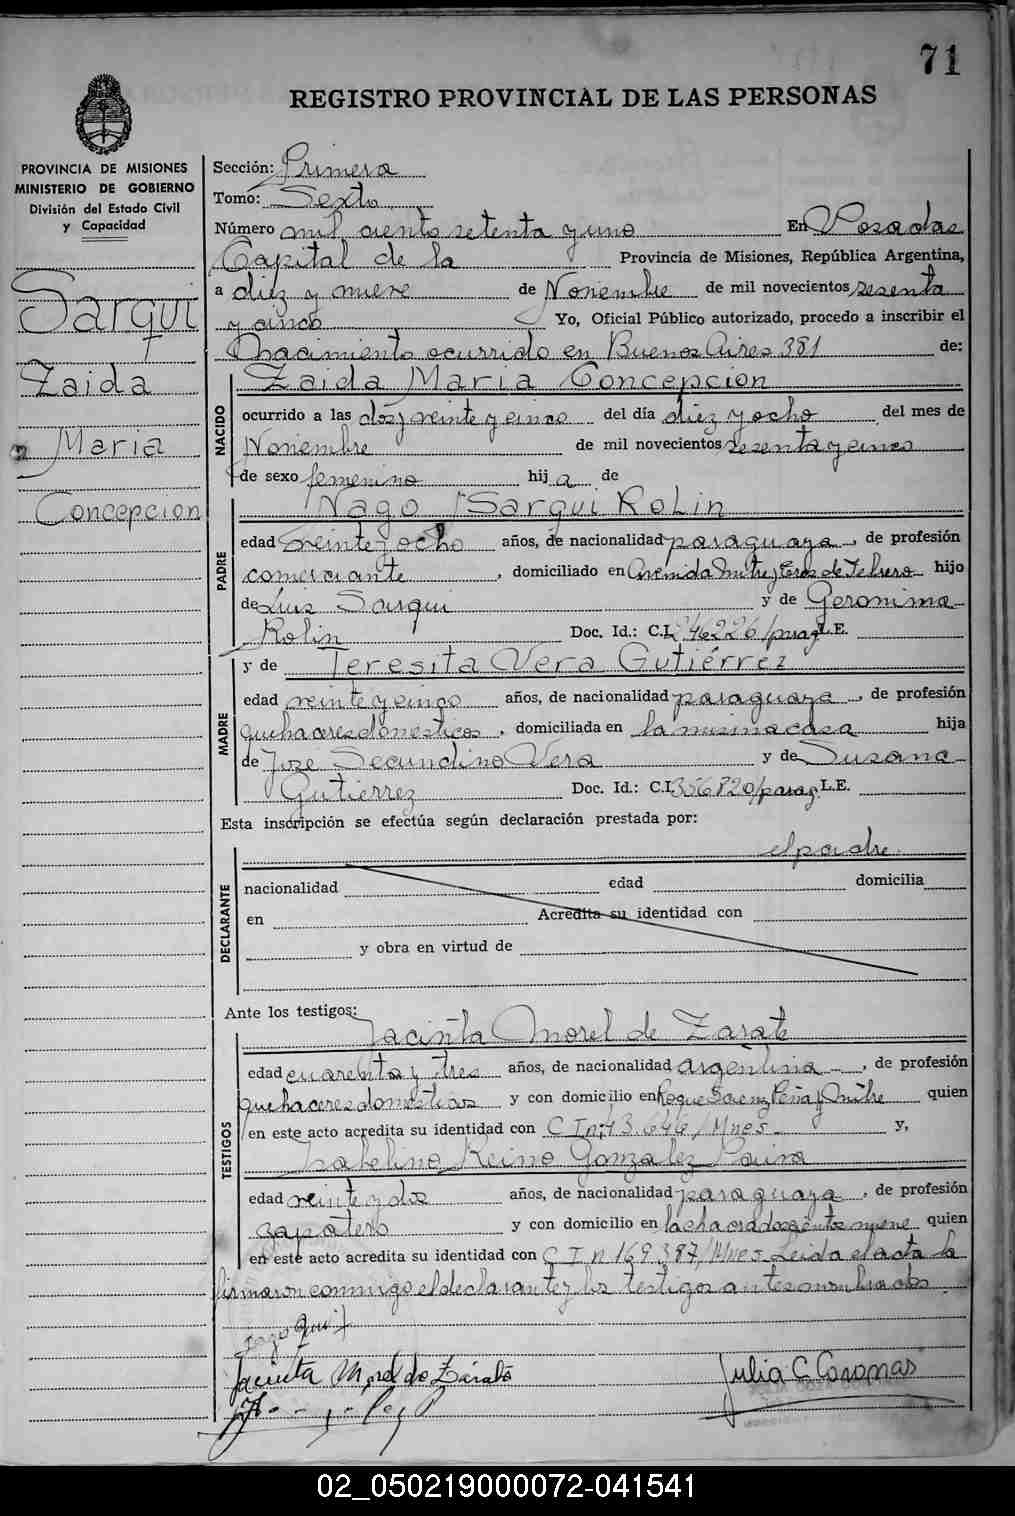 71
REGISTRO PROVINCIAL DE LAS PERSONAS
PROVINCIA DE MISIONES
MINISTERIO DE GOBIERNO
División del Estado Civil
y Capacidad
Sarqui
Zaida
Maria
Concepcion
Sección: Primera
Tomo: Sexto
Número mil ciento setenta y uno En Posadas
Capital de la Provincia de Misiones, República Argentina,
a diez y nueve de Noviembre de mil novecientos sesenta
y cinco Yo, Oficial Público autorizado, procedo a inscribir el
Nacimiento ocurrido en Buenos Aires 381 de:
NACIDO
Zaida Maria Concepcion
ocurrido a las dos y veinte y cinco del día diez y ocho del mes de
Noviembre de mil novecientos sesenta y cinco
de sexo femenino hij a de
PADRE
Yago Sarqui Rolin
edad veinte y ocho años, de nacionalidad paraguaya, de profesión
comerciante, domiciliado en Avenida Mitre y tres de Febrero hijo
de Luis Sarqui y de Geronima
Rolin Doc. Id.: C.I. 246226/parag L.E.
MADRE
y de Teresita Vera Gutiérrez
edad veinte y cinco años, de nacionalidad paraguaya, de profesión
quehaceres domesticos, domiciliada en la misma casa hija
de Jose Secundino Vera y de Susana
Gutierrez Doc. Id.: C.I. 356820/parag L.E.
Esta inscripción se efectúa según declaración prestada por:
DECLARANTE
el padre
nacionalidad edad domicilia
en Acredita su identidad con
y obra en virtud de
Ante los testigos:
TESTIGOS
Jacinta Morel de Zarate
edad cuarenta y tres años, de nacionalidad argentina, de profesión
quehaceres domesticos y con domicilio en Roque Saenz Peña y Mitre quien
en este acto acredita su identidad con C I n 73.646/Mnes. y,
Isabelino Reino Gonzalez
edad veinte y dos años, de nacionalidad paraguaya, de profesión
zapatero y con domicilio en la chacra doscientos nueve quien
en este acto acredita su identidad con C I n 169.387/Mnes. Leida el acta la
firmaron conmigo el declarante y los testigos antes nombrados
Jacinta Morel de Zárate
Julia C. Coronas
02_050219000072-041541